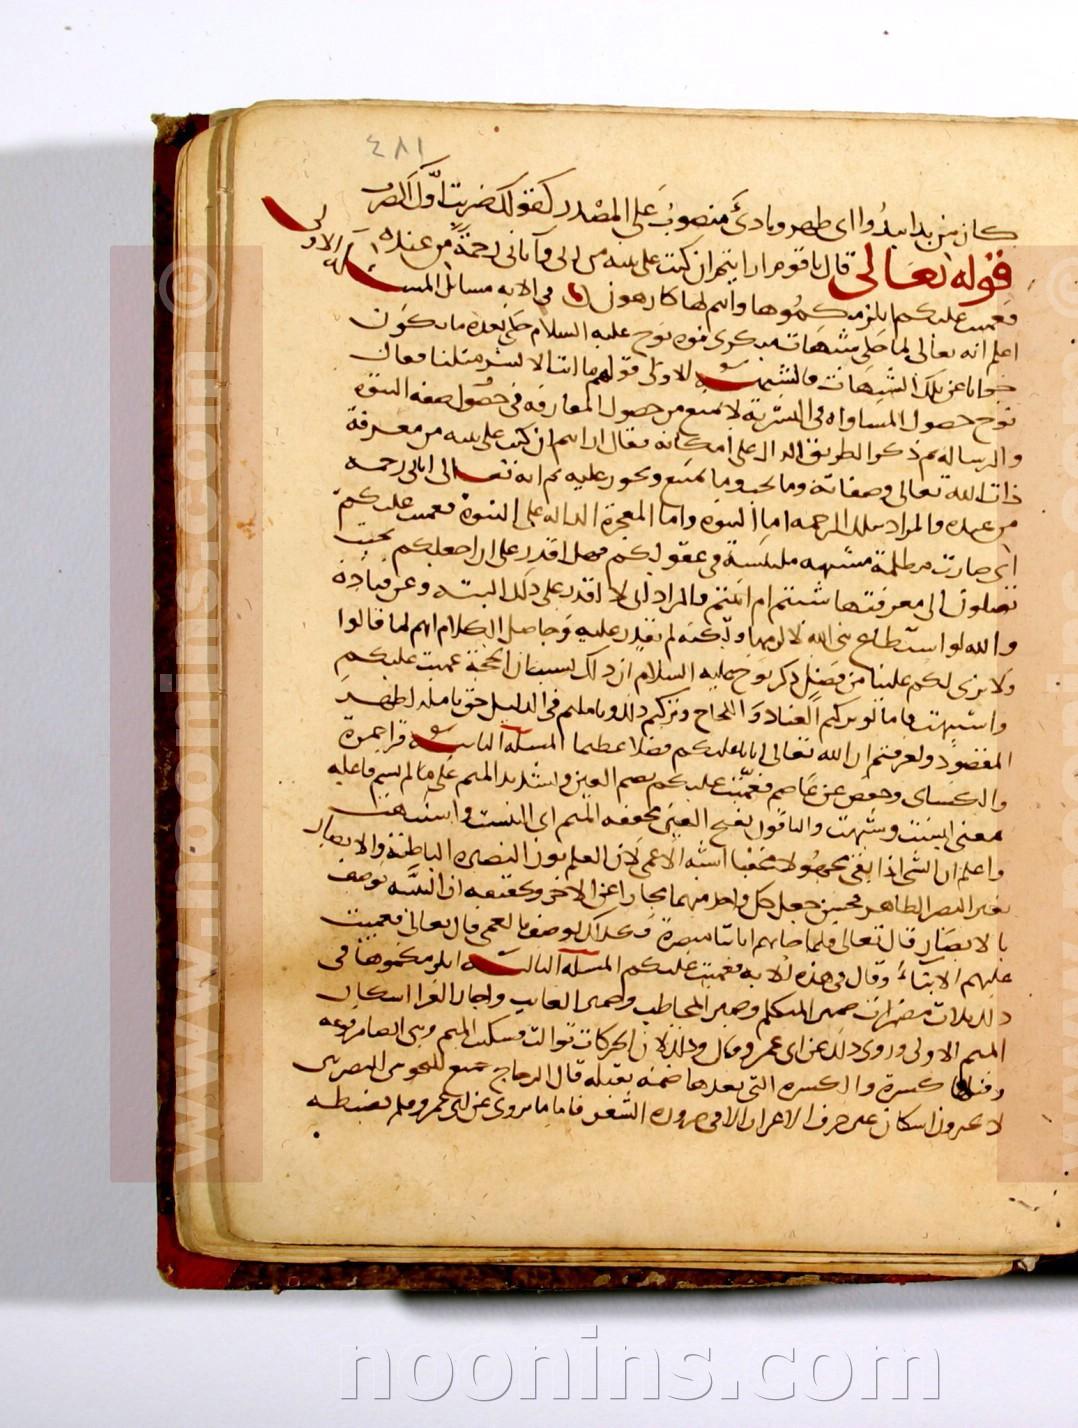 ٤٨١
كان من بدا يبدُوا اى ظهر وبادئ منصوبٌ على المصدر كقولك ضربت اوّل الضرب
قوله تعالى قال يا قوم ارايتم ان كنت على بينه من ربى وآتانى رحمة من عنده
فعميت عليكم انلزمكموها وانتم لها كارهون فى الايه مسائل المسئله الاولى
اعلم انه تعالى لما حكى شبهات منكرى نبوه نوح عليه السلام حكى بعده ما يكون
جوابا عن تلك الشبهات فالشبهه الاولى قولهم ما انت الا بشر مثلنا فقال
نوح حصول المساواه فى البشرية لا يمنع من حصول المفارقه فى حصول صفه النبوه
والرساله ثم ذكر الطريق الدال على امكانه فقال ارايتم ان كنت على بينه من معرفة
ذات الله تعالى وصفاته وما يجب وما يمتنع ويجوز عليه ثم انه تعالى اتانى رحمه
من عنده والمراد بتلك الرحمه اما النبوه واما المعجزة الداله على النبوة فعميت عليكم
اى صارت مظلمة مشتبهه ملتبسة فى عقولكم فهل اقدر على ان اجعلكم بحيث
تصلون الى معرفتها شئتم ام ابيتم والمراد انى لا اقدر على ذلك البته وعن قتادة
والله لو استطاع نبى الله لالزمها ولكنه لم يقدر عليه وحاصل الكلام انهم لما قالوا
ولا نرى لكم علينا من فضل ذكر نوح عليه السلام ان ذلك بسبب ان الحجة عميت عليكم
واشتبهت فاما لو تركتم العناد واللجاج ونركتم ذلك وتاملتم فى الدليل حق تامله لظهر
المقصود ولعرفتم ان الله تعالى اتانا عليكم فضلا عظيما المسئلة الثانيه قرا حمزة
والكساى وحفص عن عاصم فعمّيت عليكم بضم العين وتشديد الميم على ما لم يسم فاعله
بمعنى البست وشبهت والباقون بفتح العين مخففه الميم اى التبست واشتبهت
واعلم ان الشى اذا بقى مجهولا محضا اشبه الاعمى لان العلم نور البصيره الباطنة والابصار
نور البصر الظاهر فحسن جعل كل واحد منهما مجازا عن الاخر وتحقيقه ان البينه توصف
بالابصار قال تعالى فلما جاتهم اياتنا مبصرة فكذلك توصف بالعمى قال تعالى فعميت
عليهم الانباء وقال فى هذه الايه فعميت عليكم المسئله الثالثه انلزمكموها فى
ذلك ثلاث مضمرات ضمير المتكلم وضمير المخاطب وضمير الغايب واجاز الفرا اسكان
الميم الاولى وروى ذلك عن ابى عمرو وقال وذلك لان الحركات توالت فسكنت الميم وهى ايضا مرفوعه
وقبلها كسرة والكسره التى بعدها ضمه ثقيله قال الزجاج جميع النحويين البصريين
لا يجيزون اسكان حرف الاعراب الا فى ضروره الشعر فاما ما يروى عن ابى عمرو فلم يضبطه
noonins.com
© www.noonins.com